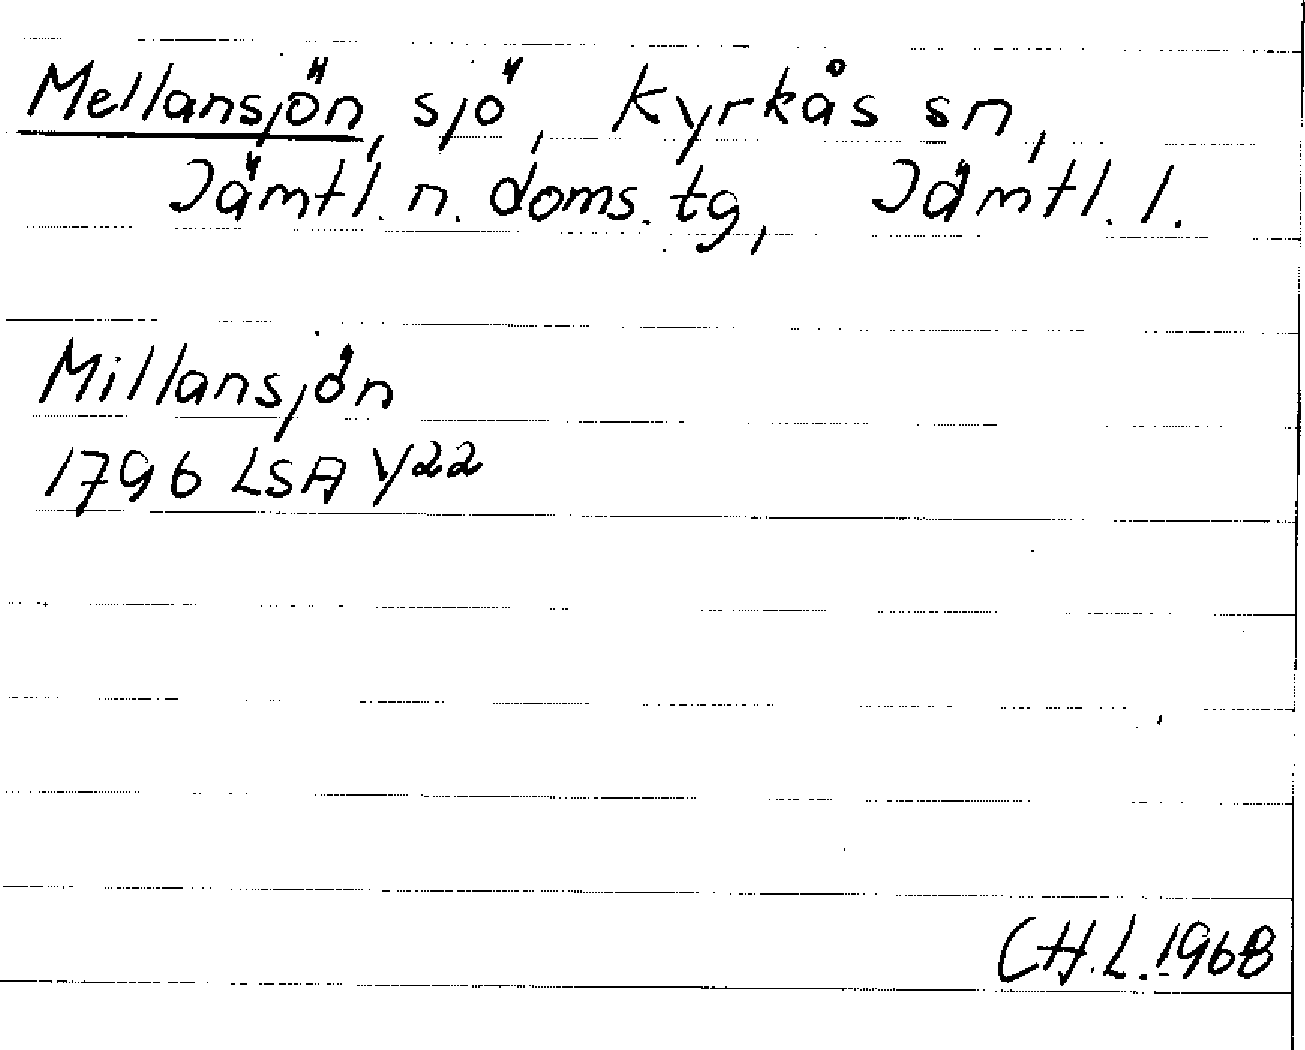 Mellansjön, sjö, Kyrkås sn,
Jämtl. n. doms. tg, Jämtl. l.
Millansjön
1796 LSA Y22
C H. L. 1968